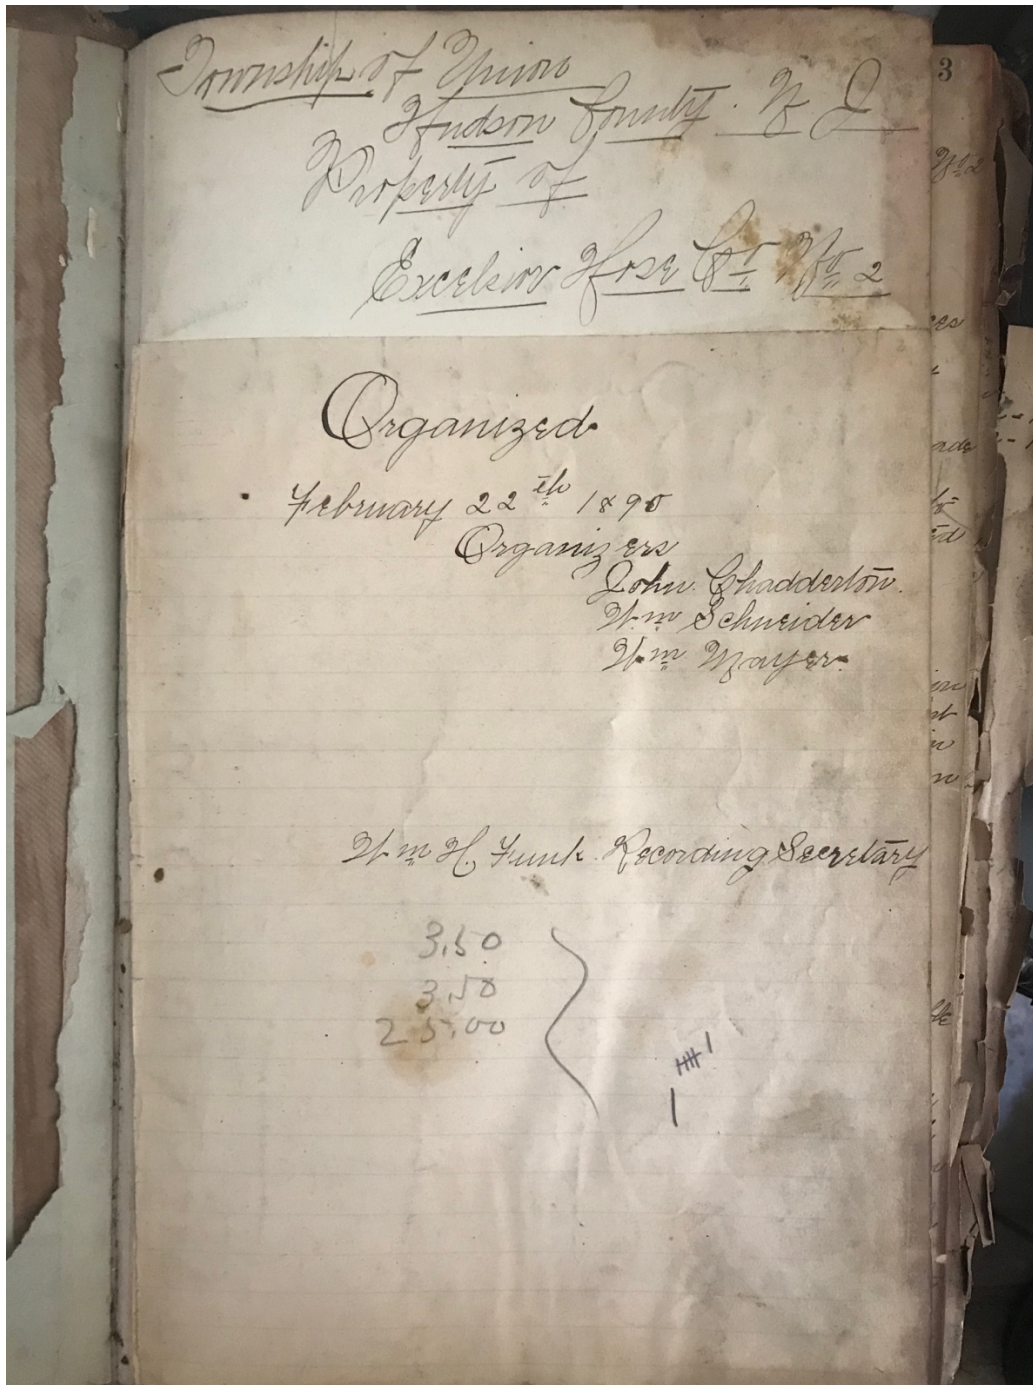 Township of Union
Hudson County. N J
Property of
Excelsior Hose Co. No. 2
Organized
February 22th 1890
Organizers
John Chadderton.
Wm Schneider
Wm Mayer.
Wm H. Funk. Recording Secretary
3.50
3.50
25.00
3
No 2